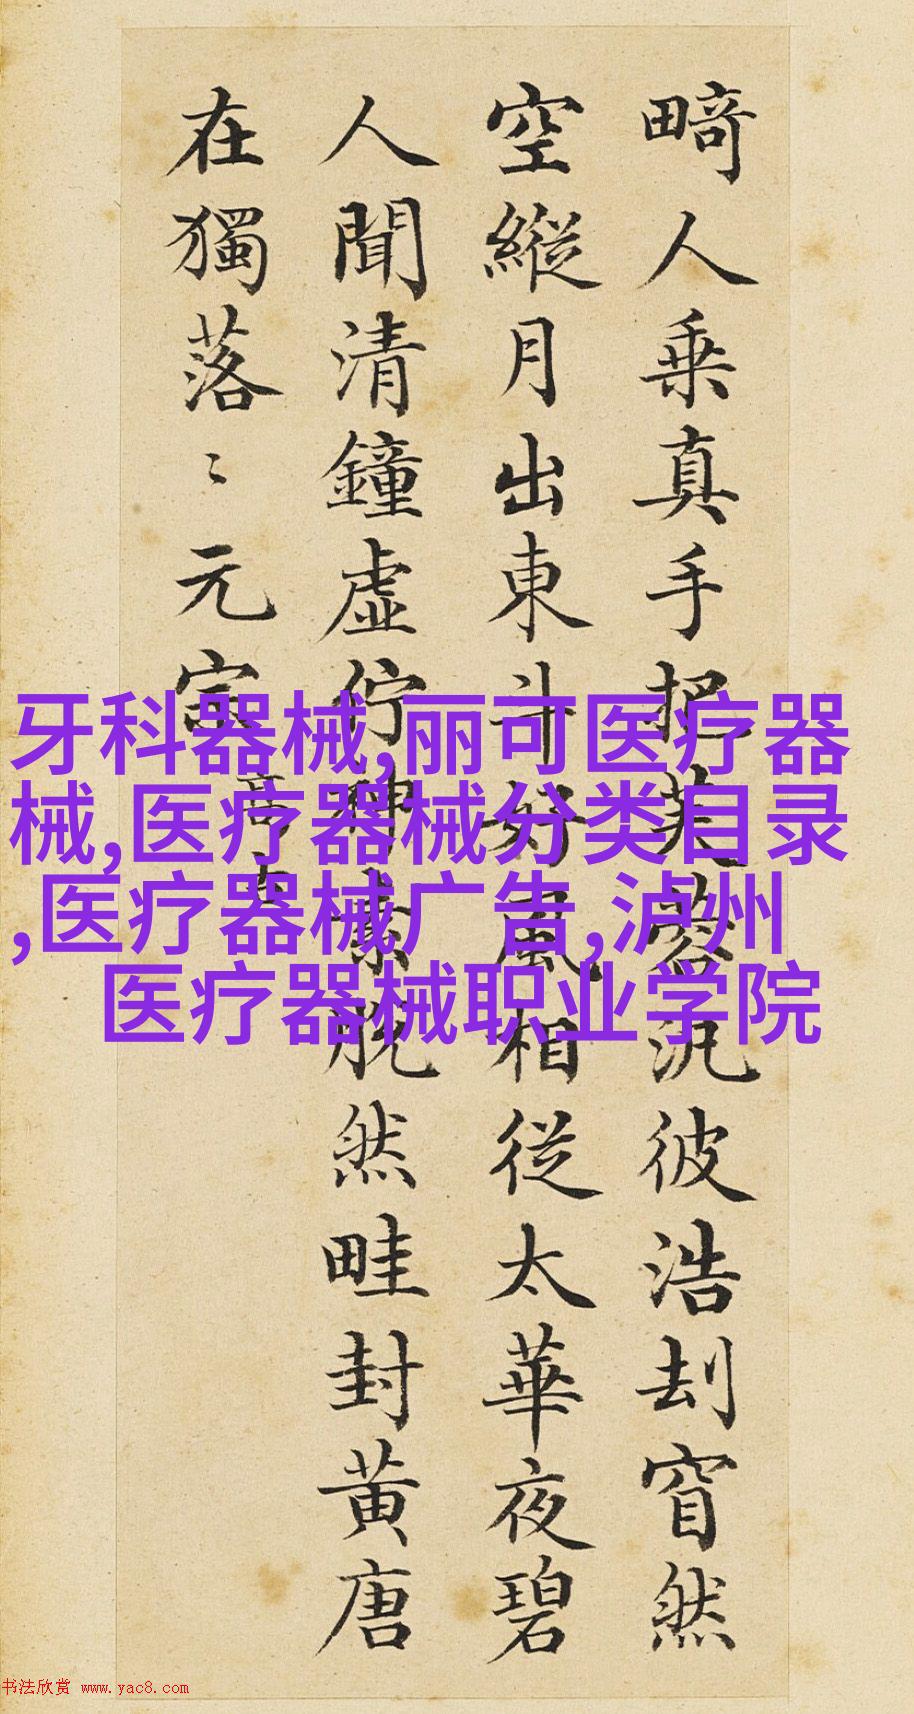 畸人乗真手把芙蓉汎彼浩刦窅然
空縱月出東斗好風相從太華夜碧
人聞清鐘虛佇神素脫然畦封黃唐
在獨落〻元宗
高古
牙科器械,丽可医疗器
械,医疗器械分类目录
,医疗器械广告,泸州
医疗器械职业学院
书法欣赏 www.yac8.com